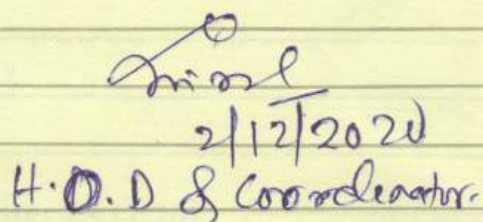 2/12/2020
H.O.D & Coordinator.